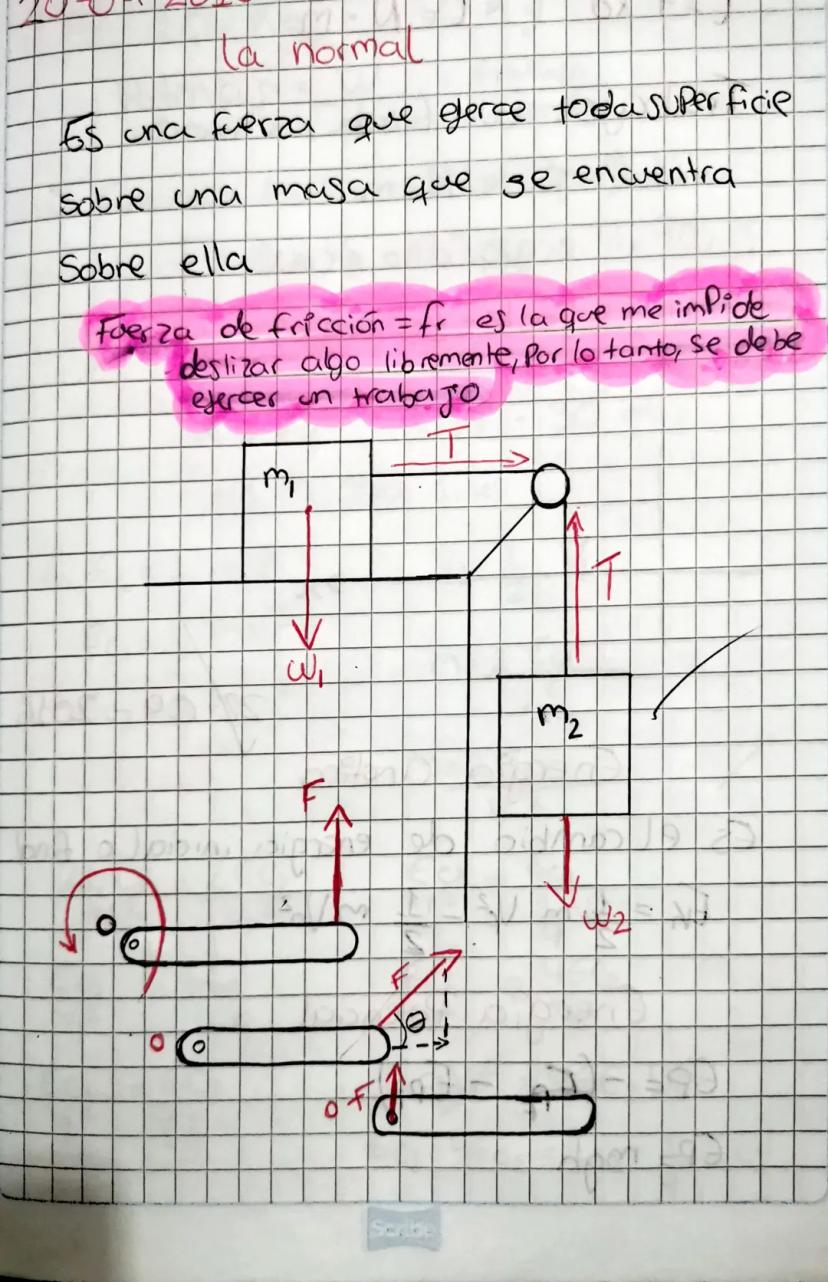 la normal
Es una fuerza que ejerce toda superficie
sobre una masa que se encuentra
Sobre ella
Fuerza de fricción = fr es la que me impide
deslizar algo libremente, Por lo tanto, se debe
ejercer un trabajo
T
m₁
T
w₁
m₂
F
w₂
O
F
θ
O
O F
Scribe